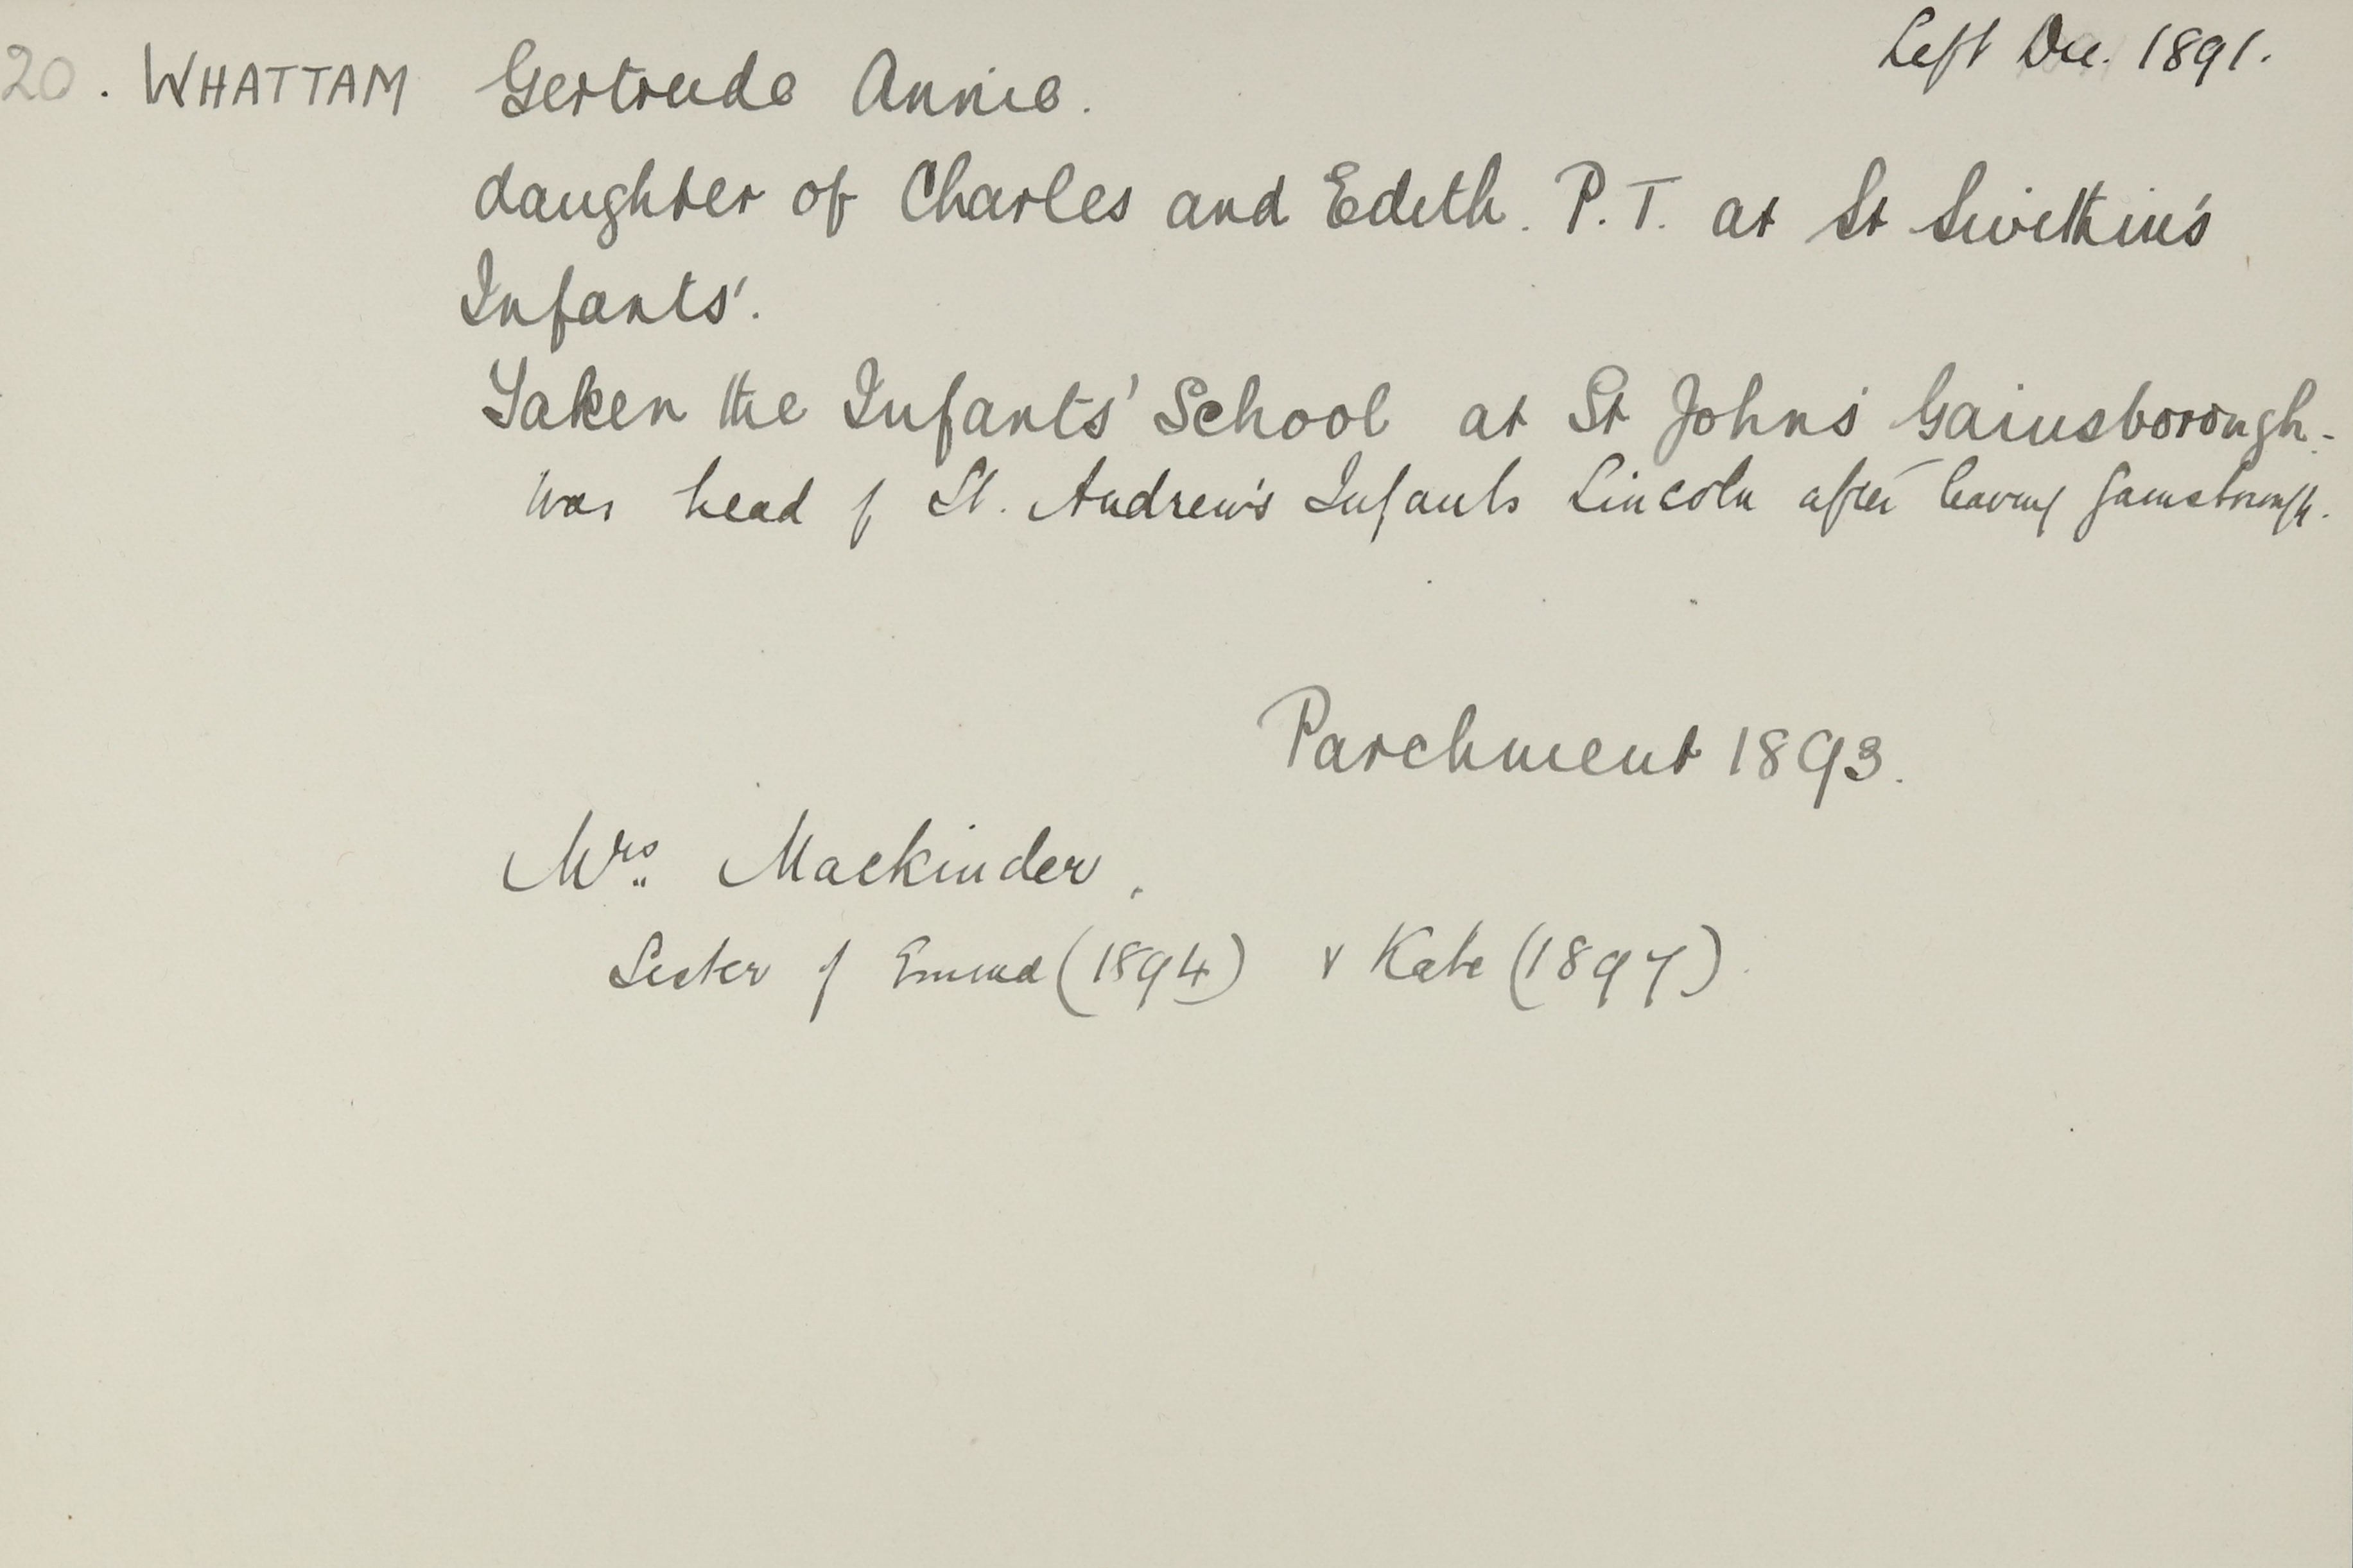 Left Dec. 1891.
20. WHATTAM Gertrude Annie.
daughter of Charles and Edith. P.T. at St Swithin's
Infants'.
Taken the Infants' School at St Johns' Gainsborough.
Was head of St. Andrew's Infants Lincoln after leaving Gainsborough.
Parchment 1893.
Mrs. Mackinder.
Sister of Emma (1894) & Kate (1897).